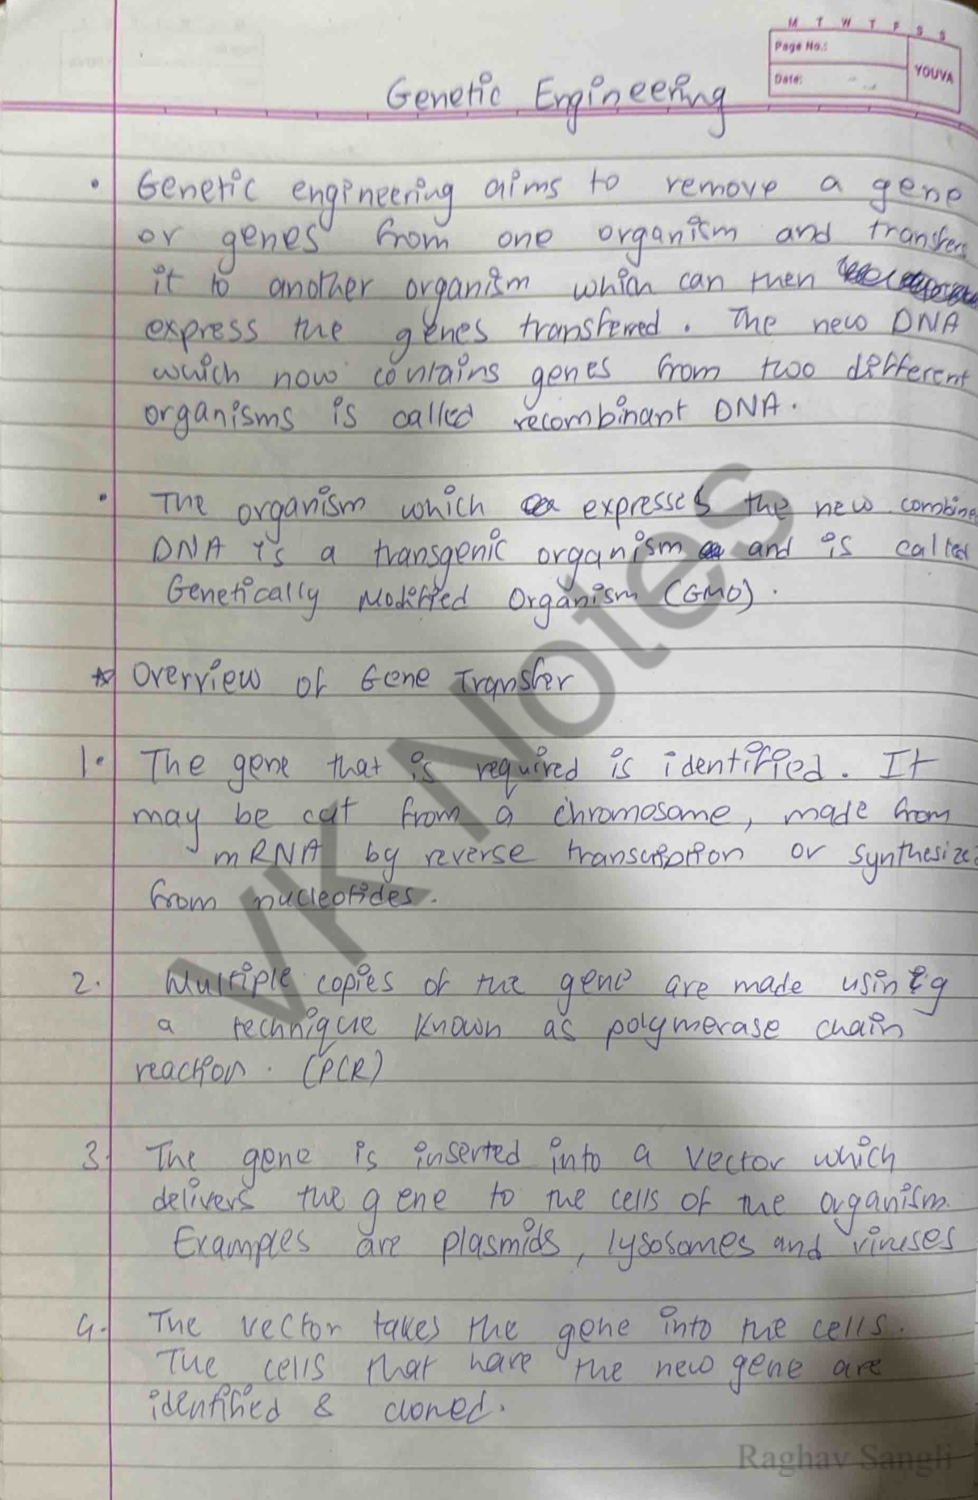 M T W T F S S
Page No.:
Date:
YOUVA
Genetic Engineering
• Genetic engineering aims to remove a gene
or genes from one organism and transfer
it to another organism which can then
express the genes transferred. The new DNA
which now contains genes from two different
organisms is called recombinant DNA.
• The organism which expresses the new combine
DNA is a transgenic organism and is called
Genetically Modified Organism (GMO).
☆ Overview of Gene Transfer
1. The gene that is required is identified. It
may be cut from a chromosome, made from
mRNA by reverse transcription or synthesize
from nucleotides.
2. Multiple copies of the gene are made using
a technique known as polymerase chain
reaction. (PCR)
3. The gene is inserted into a vector which
delivers the gene to the cells of the organism.
Examples are plasmids, lysosomes and viruses
4. The vector takes the gene into the cells.
The cells that have the new gene are
identified & cloned.
VK Notes
Raghav Sangli